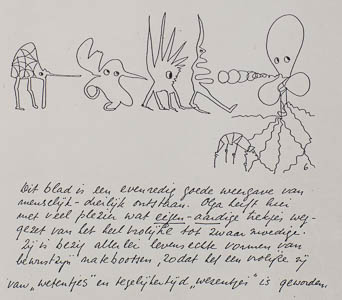 Dit blad is een evenredig goede weergave van
menselijk-dierlijk ontstaan. Olga heeft hier
met veel plezier wat eigen-aardige hekjes weg-
gezet van het heel vrolijke tot zwaar moedige.
Zij is bezig allerlei levensechte vormen van
bewustzijn na te bootsen, zodat het een vrolijke zij
van „wetentjes" en tegelijkertijd „wezentjes" is geworden.